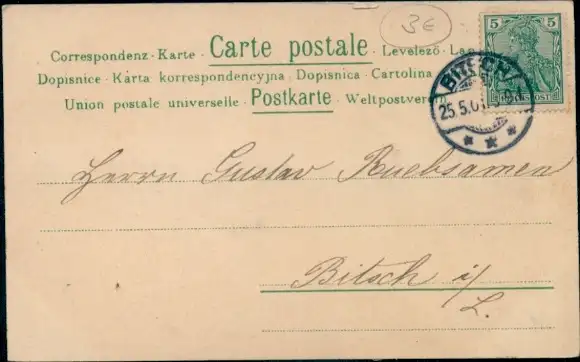 3€
Correspondenz-Karte · Carte postale · Levelező
Dopisnice · Karta korrespondencyjna · Dopisnica · Cartolina
Union postale universelle · Postkarte · Weltpostverein
5 5
BITSCH
25.5.01
REICHSPOST
Herrn Gustav Ruebsamen
Bitsch i/
L.